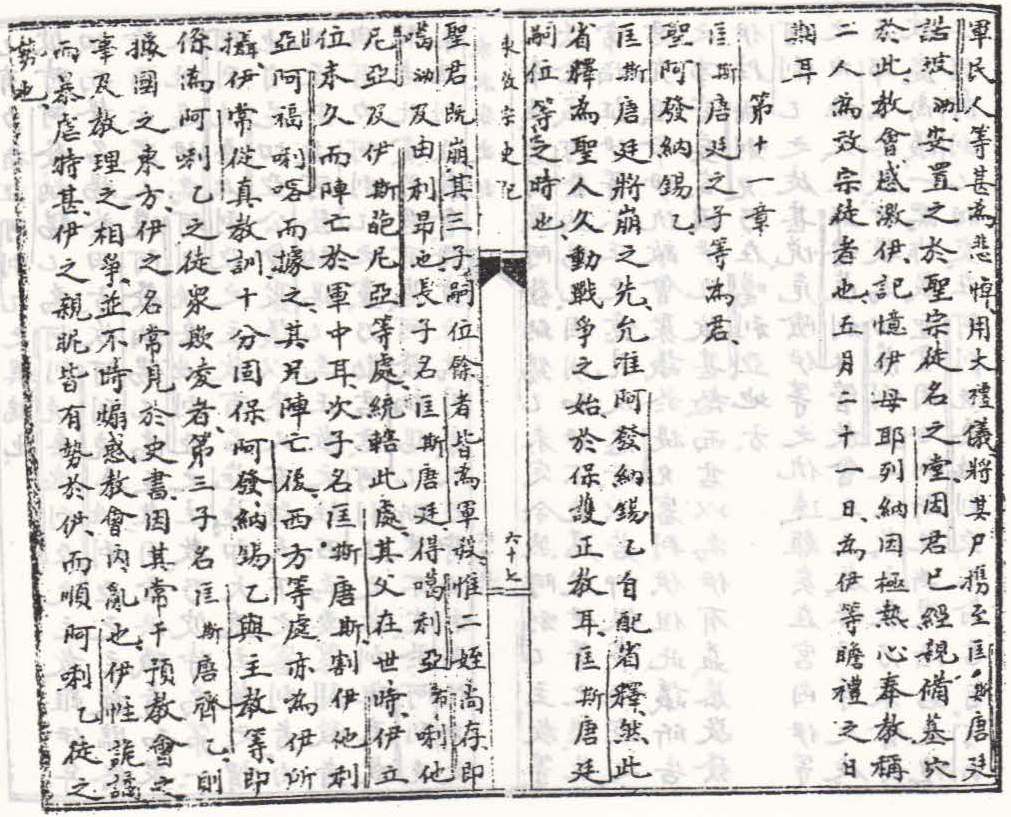 軍民人等甚為悲悼用大禮儀將其尸攜至匡斯唐廷
諾波沕安置之於聖宗徒名之堂因君已經親備墓穴
於此教會感激伊記憶伊母耶列納因極熱心奉教稱
二人為效宗徒者也五月二十一日為伊等瞻禮之日
期耳
第十一章
匡斯唐廷之子等為君
聖阿發納錫乙
匡斯唐廷將崩之先允准阿發納錫乙自配省釋然此
省釋為聖人久動戰爭之始於保護正教耳匡斯唐廷
嗣位等之時也
東教宗史記
六十七
聖君既崩其三子嗣位餘者皆為軍殺惟二姪尚存即
噶沕及由利昂也長子名匡斯唐廷得噶利亞布唎他
尼亞及伊斯葩尼亞等處統轄此處其父在世時伊立
位未久而陣亡於軍中耳次子名匡斯唐斯割伊他利
亞阿福唎喀而據之其兄陣亡後西方等處亦為伊所
攝伊常從真教訓十分固保阿發納錫乙與主教等即
係為阿唎乙之徒眾欺凌者第三子名匡斯唐齊乙則
據國之東方伊之名常見於史書因其常干預教會之
事及教理之相爭並不時煽惑教會內亂也伊性詭譎
而暴虐特甚伊之親昵皆有勢於伊而順阿唎乙徒之
勢也